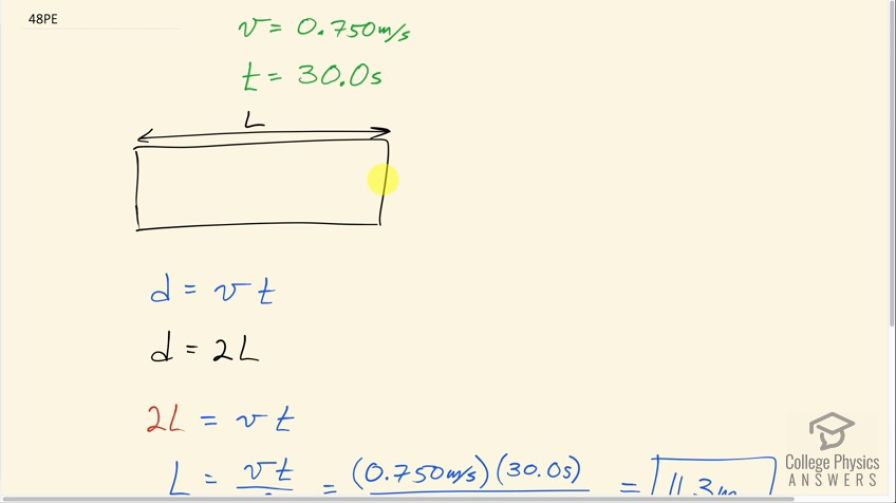 48PE
v = 0.750 m/s
t = 30.0s
L
d = v t
d = 2L
2L = v t
L = vt = (0.750m/s)(30.0s) = 11.3m
College Physics
ANSWERS